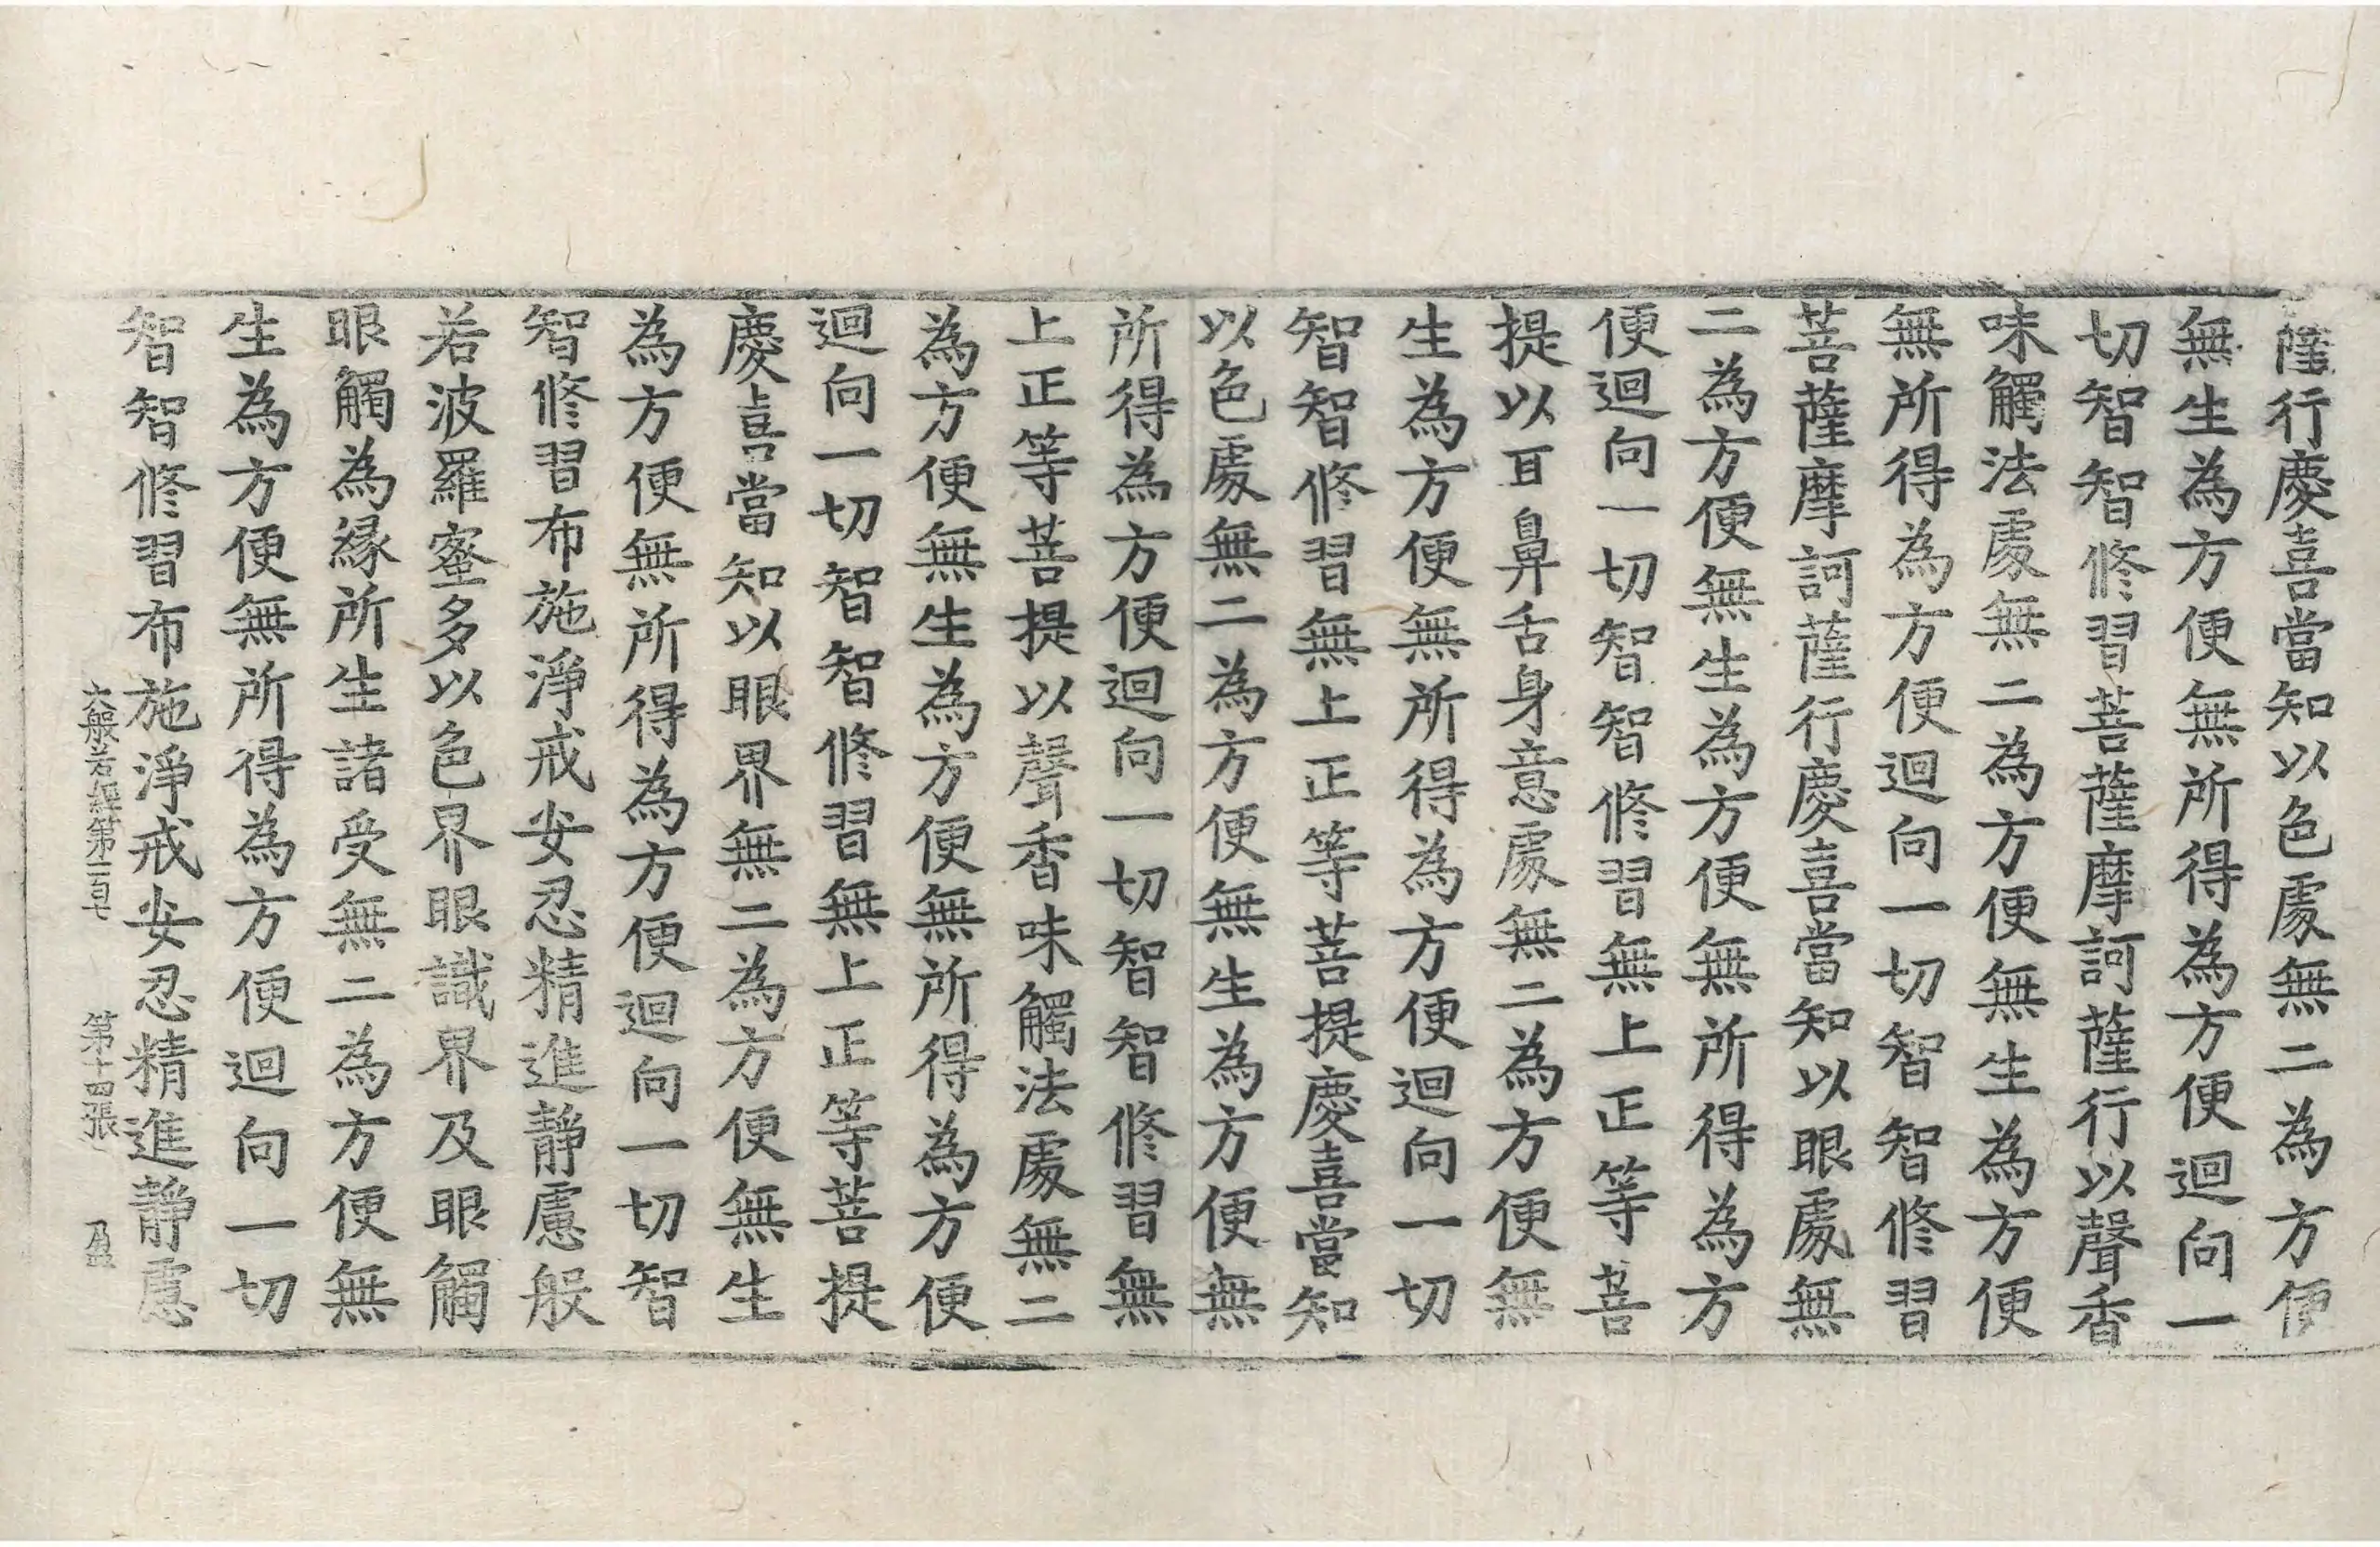 薩行慶喜當知以色處無二為方便
無生為方便無所得為方便迴向一
切智智修習菩薩摩訶薩行以聲香
味觸法處無二為方便無生為方便
無所得為方便迴向一切智智修習
菩薩摩訶薩行慶喜當知以眼處無
二為方便無生為方便無所得為方
便迴向一切智智修習無上正等菩
提以耳鼻舌身意處無二為方便無
生為方便無所得為方便迴向一切
智智修習無上正等菩提慶喜當知
以色處無二為方便無生為方便無
所得為方便迴向一切智智修習無
上正等菩提以聲香味觸法處無二
為方便無生為方便無所得為方便
迴向一切智智修習無上正等菩提
慶喜當知以眼界無二為方便無生
為方便無所得為方便迴向一切智
智修習布施淨戒安忍精進靜慮般
若波羅蜜多以色界眼識界及眼觸
眼觸為緣所生諸受無二為方便無
生為方便無所得為方便迴向一切
智智修習布施淨戒安忍精進靜慮
大般若經第一百七 第十四張